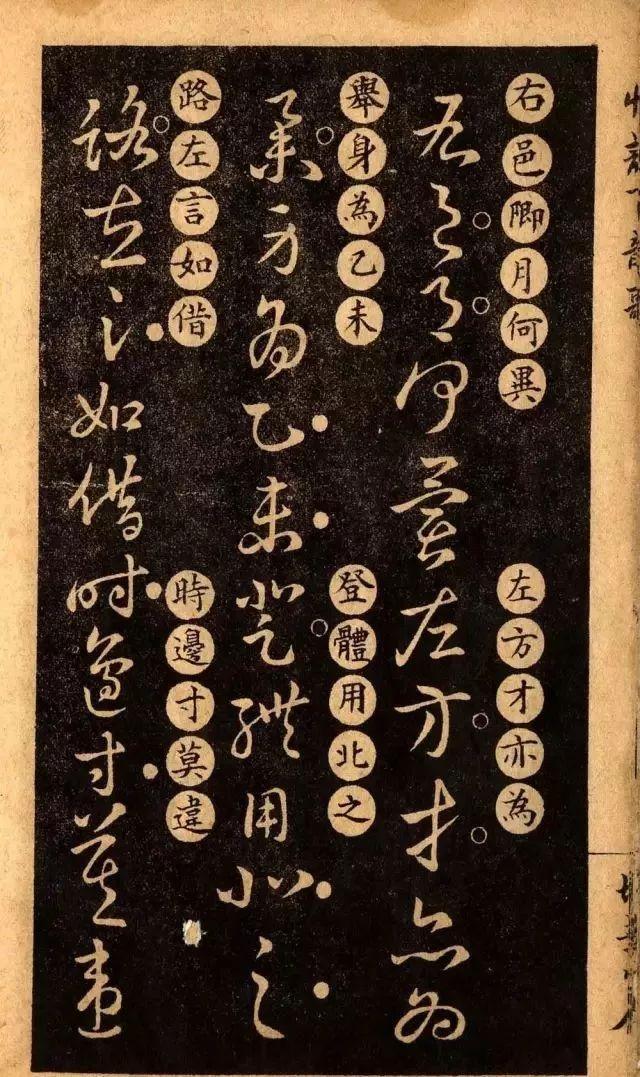 右邑卿月何異 左方才亦為
右邑月何異左方才亦為
舉身為乙未 登體用北之
舉身為乙未登體用北之
路左言如借 時邊寸莫違
路左言如借時邊寸莫違